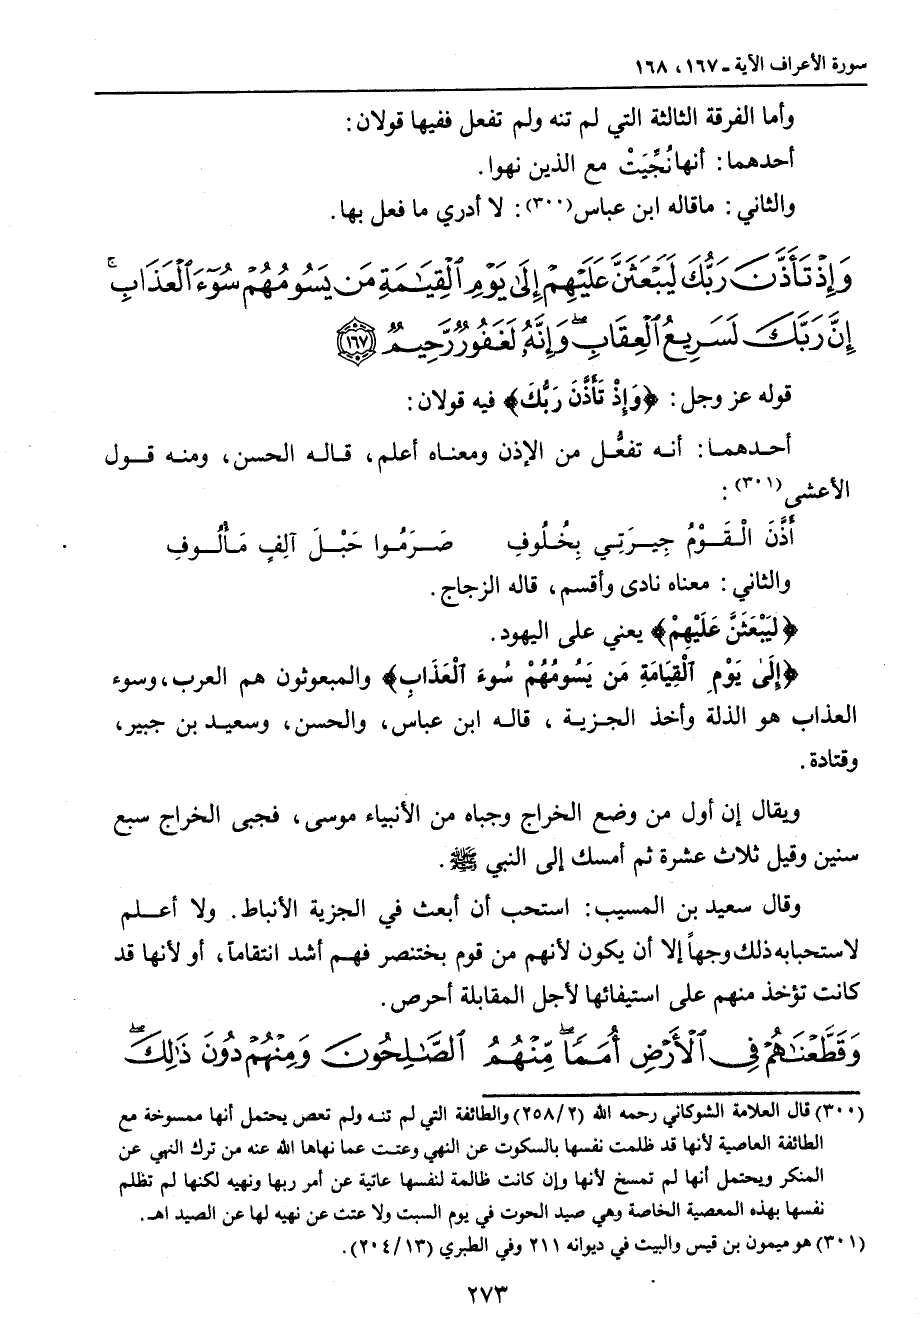 سورة الأعراف الآية ـ ١٦٧، ١٦٨
وأما الفرقة الثالثة التي لم تنه ولم تفعل ففيها قولان:
أحدهما: أنها نُجِّيَتْ مع الذين نهوا.
والثاني: ماقاله ابن عباس(٣٠٠): لا أدري ما فعل بها.
وَإِذْ تَأَذَّنَ رَبُّكَ لَيَبْعَثَنَّ عَلَيْهِمْ إِلَىٰ يَوْمِ ٱلْقِيَٰمَةِ مَن يَسُومُهُمْ سُوٓءَ ٱلْعَذَابِ ۚ
إِنَّ رَبَّكَ لَسَرِيعُ ٱلْعِقَابِ ۖ وَإِنَّهُۥ لَغَفُورٌ رَّحِيمٌ ١٦٧
قوله عز وجل: ﴿وَإِذْ تَأَذَّنَ رَبُّكَ﴾ فيه قولان:
أحدهما: أنه تفعُّل من الإذن ومعناه أعلم، قاله الحسن، ومنه قول
الأعشى(٣٠١):
أَذَّنَ الْقَوْمُ جِيرَتِي بِخُلُوفِ صَرَمُوا حَبْلَ آلِفٍ مَأْلُوفِ
والثاني: معناه نادى وأقسم، قاله الزجاج.
﴿لَيَبْعَثَنَّ عَلَيْهِمْ﴾ يعني على اليهود.
﴿إِلَىٰ يَوْمِ الْقِيَامَةِ مَن يَسُومُهُمْ سُوءَ الْعَذَابِ﴾ والمبعوثون هم العرب، وسوء
العذاب هو الذلة وأخذ الجزية، قاله ابن عباس، والحسن، وسعيد بن جبير،
وقتادة.
ويقال إن أول من وضع الخراج وجباه من الأنبياء موسى، فجبى الخراج سبع
سنين وقيل ثلاث عشرة ثم أمسك إلى النبي ﷺ.
وقال سعيد بن المسيب: استحب أن أبعث في الجزية الأنباط. ولا أعلم
لاستحبابه ذلك وجهاً إلا أن يكون لأنهم من قوم بختنصر فهم أشد انتقاماً، أو لأنها قد
كانت تؤخذ منهم على استيفائها لأجل المقابلة أحرص.
وَقَطَّعْنَٰهُمْ فِى ٱلْأَرْضِ أُمَمًا ۖ مِّنْهُمُ ٱلصَّٰلِحُونَ وَمِنْهُمْ دُونَ ذَٰلِكَ ۖ
(٣٠٠) قال العلامة الشوكاني رحمه الله (٢/٢٥٨) والطائفة التي لم تنه ولم تعص يحتمل أنها ممسوخة مع
الطائفة العاصية لأنها قد ظلمت نفسها بالسكوت عن النهي وعتت عما نهاها الله عنه من ترك النهي عن
المنكر ويحتمل أنها لم تمسخ لأنها وإن كانت ظالمة لنفسها عاتية عن أمر ربها ونهيه لكنها لم تظلم
نفسها بهذه المعصية الخاصة وهي صيد الحوت في يوم السبت ولا عتت عن نهيه لها عن الصيد اهـ.
(٣٠١) هو ميمون بن قيس والبيت في ديوانه ٢١١ وفي الطبري (١٣/٢٠٤).
٢٧٣